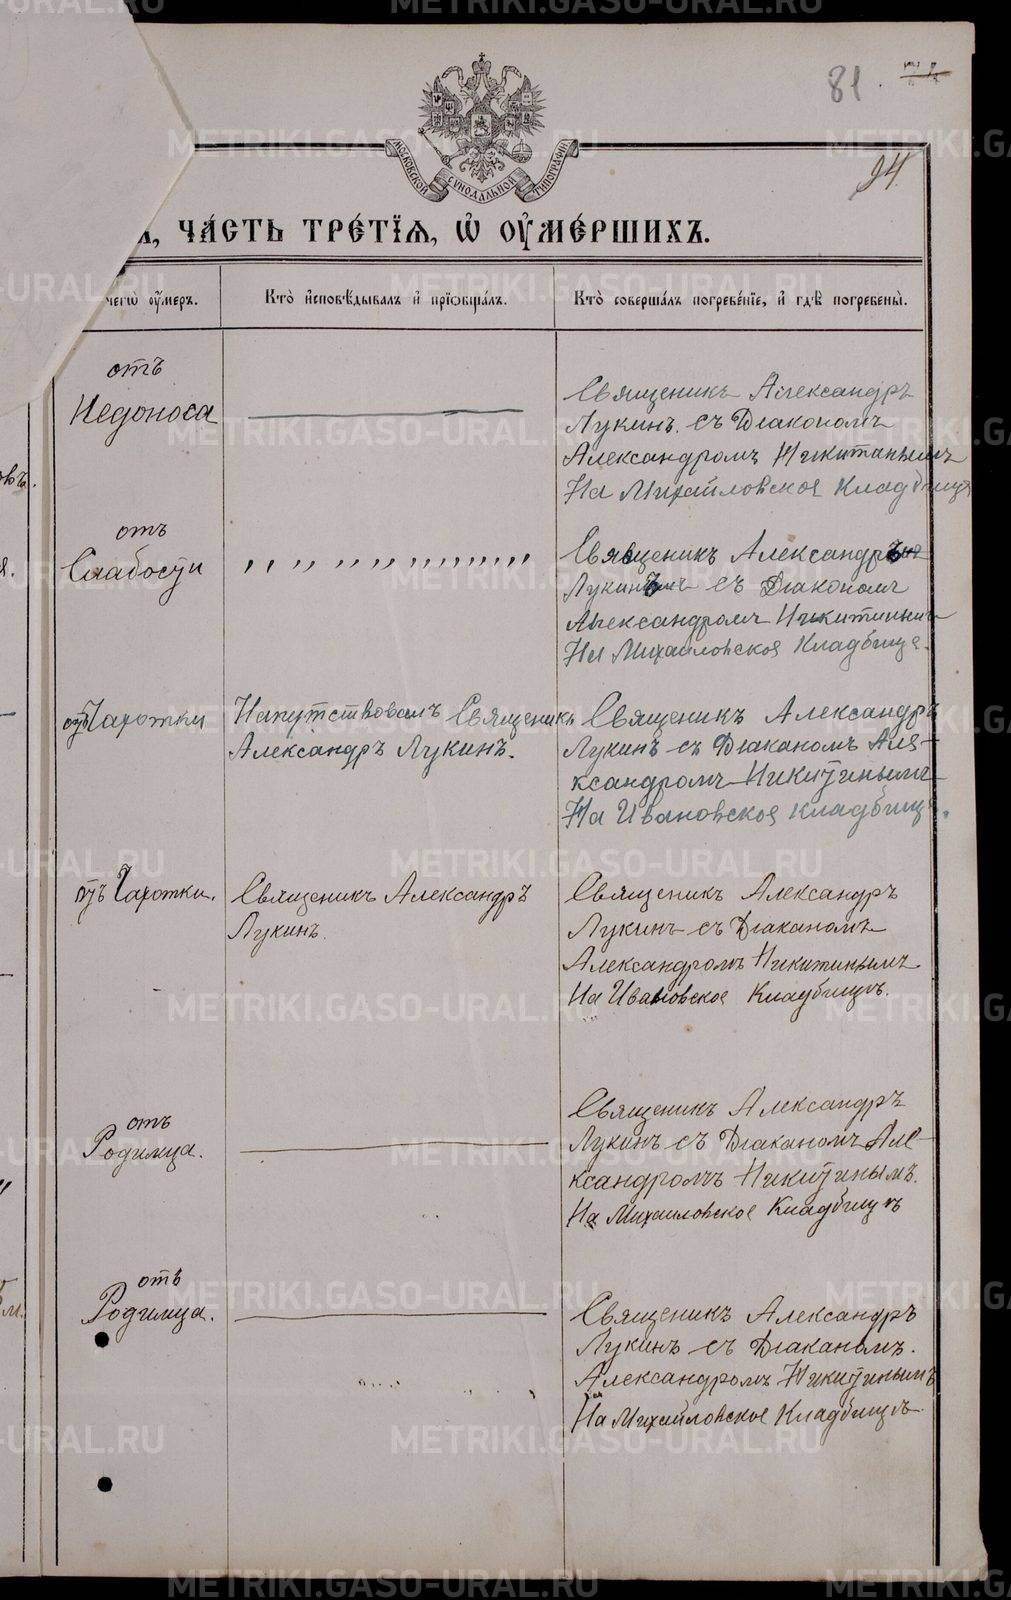 81
94
МОСКОВСКОЙ СѴНОДАЛЬНОЙ ТИПОГРАФІИ
ЧА́СТЬ ТРЕ́ТІЯ, Ѡ҆ ОУ҆МЕ́РШИХЪ.
чегѡ̀ оу҆́меръ.
Кто̀ и҆сповѣ́дывалъ и҆ прїѡбща́лъ.
Кто̀ соверша́лъ погребе́нїе, и҆ гдѣ̀ погребены̀.
отъ
Недоноса
Священикъ Александръ
Лукинъ. съ Діакономъ
Александромъ Никитинымъ
На Михайловское Кладбище
отъ
Слабости
" " " " " " " " " " " " "
Священикъ Александръ
Лукинъ съ Діакономъ
Александромъ Никитинымъ
На Михаиловское Кладбище.
отъ Чахотки
Напутствовалъ Священикъ
Александръ Лукинъ.
Священикъ Александръ
Лукинъ съ Діаканомъ Але-
ксандромъ Никитинымъ
На Ивановское Кладбище.
отъ Чахотки.
Священикъ Александръ
Лукинъ.
Священикъ Александръ
Лукинъ съ Діаканомъ
Александромъ Никитинымъ
На Ивановское Кладбищъ.
отъ
Родимца.
Священикъ Александръ
Лукинъ съ Діаканомъ Але-
ксандромъ Никитинымъ.
На Михаиловское Кладбищъ
отъ
Родимца.
Священикъ Александръ
Лукинъ съ Діаканомъ.
Александромъ Никитинымъ
На Михайловское Кладбищъ.
METRIKI.GASO-URAL.RU